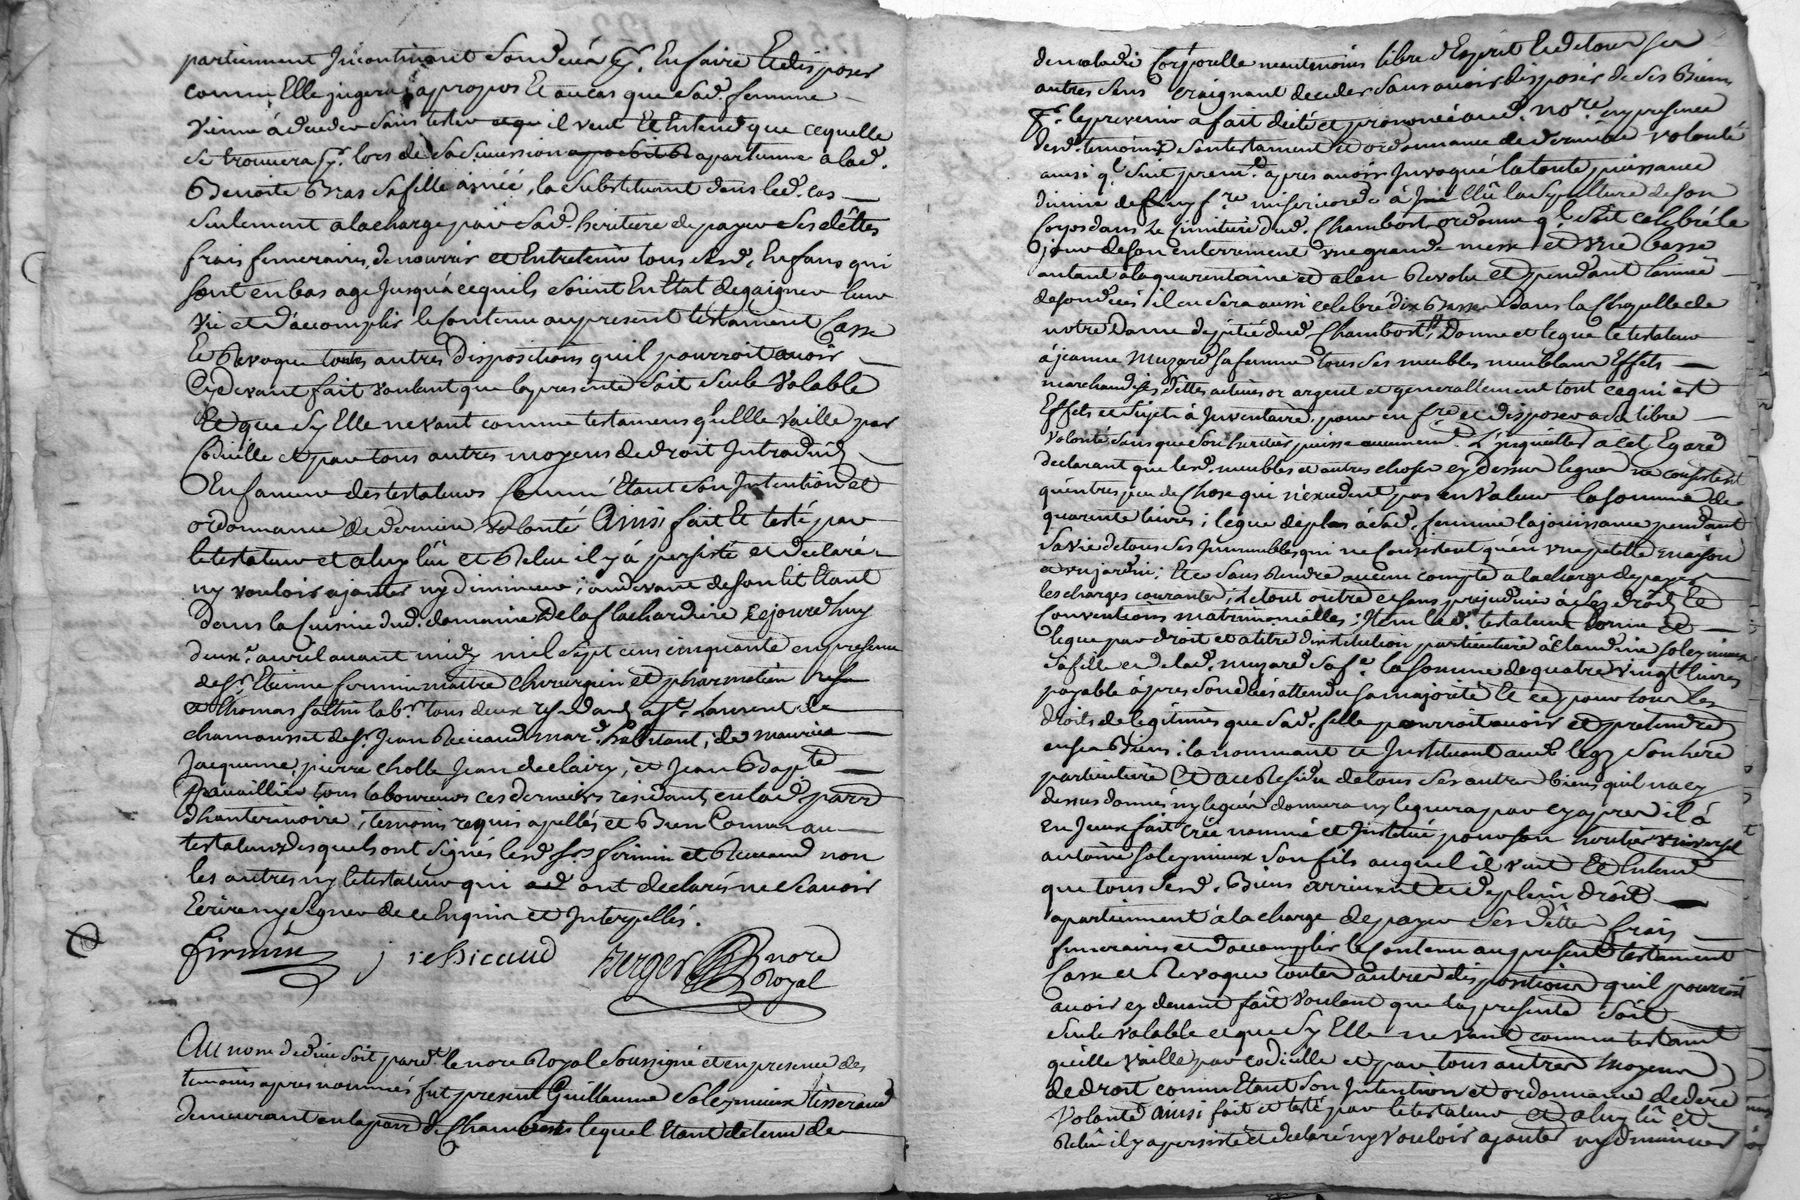 partiennent Incontinant son decés pr. En faire Et disposer
comme Elle jugera apropos Et au cas que sad. femme
vienne à deceder sans tester il veut Et Entend que ce quelle
se trouvera lors de sa apartienne a lad.
Benoite Bras sa fille ainée, la substituant dans led. cas
seulement a la charge par sad. heritiere de payer ses dêttes
frais funeraires, de nourrir et Entretenir tous sesd. Enfans qui
sont en bas age Jusqu'à ce quils soient En Etat de gaigner leur
vie et d'accomplir le Contenu au present testament Casse
Et Revoque toutes autres Dispositions quil pourroit avoir
Cy devant fait voulant que la presente soit seule valable
Et que sy Elle ne vaut comme testament qu'Elle vaille par
Codicille et par tous autres moyens de droit Introduits
En faveur des testateurs Comme Etant son Intention et
ordonnance de derniere volonté Ainsi fait Et testé par
le testateur et a luy lû et Relu il y à persisté et declaré
ny vouloir ajouter ny diminuer; au devant de son lit Etant
Dans la Cuisine dud. domaine de la flachardiere cejourd'huy
deuxe. avril avant midy mil sept cens cinquante en presence
de Sr. Etienne firmin maitre chirurgien et pharmatien
et Thomas labr. tous deux residants a St. Laurent de
chamousset de Sr. Jean Ressicaud marc. habitant, de maurice
Jacqueme, pierre cholle Jean declairy, et Jean Bapte
Ravaillier tous laboureurs ces derniers residants en lad. parr.
d'hauterivoire, temoins requis apellés et Bien Connu au
testateur desquels ont signés lesd. Srs. firmin et Ressicaud non
les autres ny le testateur qui ont declarés ne scavoir
Ecrire ny signer de ce Enquis et Interpellés.
firmin j ressicaud Berger nore
Royal
Au nom de dieu soit pardt. le nore Royal soussigné et en presence des
temoins apres nommés fut present Guillaume Soleymieux tisserand
demeurant en la parr. de Chambost lequel Etant detenu de
de maladie Corporelle neantmoins libre d'Esprit Et de tous ses
autres sens craignant deceder sans avoir disposer de ses Biens
pr. le prevenir a fait dicté et prononcé aud. nore. en presence
desd. temoins son testament et ordonnance de derniere volonté
ainsi q'l suit prem. apres avoir Invoqué la toute puissance
divine de luy fre. misericorde à Elû la sepulture de son
Corps dans Le cimitiere dud. Chambost ordonne q'l soit celebré le
jour de son enterrement une grande messe et une basse
autant à la quarantaine et a lan Revolu et pendant l'année
de son decés il en sera aussi celebré dix Basses dans la Chapelle de
notre Dame de pitié dud. Chambost, Donne et legue le testateur
à jeanne Muzard sa femme tous ses meubles meublans Effets
marchandises dettes actives or argent et generallement tout ce qui est
Effets et sujets à Inventaire, pour en fre. et disposer a sa libre
volonté sans que son heritier puisse aucunemt. L'inquietter a cet Egard
declarant que lesd. meubles et autres choses cy dessus legués ne consistent
qu'en tres peu de Chose qui n'excedent pas en valeur la somme de
quarente livres; legue de plus à sad. femme la jouissance pendant
sa vie de tous ses Immeubles qui ne Consistent qu'en une petite maison
et un jardin; Et ce sans Rendre aucun compte a la charge de payer
les charges courantes, Le tout outre et sans prejudice à ses droits Et
Conventions matrimonialles; Item led. testateur donne et
legue par droit et a titre d'institution particuliere à Claudine Soleymieux
sa fille et de lad. muzard sa fe. la somme de quatre vingt livres
payable àpres son decés attendu sa majorité Et ce pour tous les
droits de legitimes que sad. fille pourroit avoir et pretendre
en ses Biens; la nommant et Instituant aud. legs son here
particuliere Et au Residu de tous ses autres Biens quil na cy
dessus donnés ny legués donnera ny leguera par cy apres il à
En Iceux fait Créé nommé et Institué pour son heritier universel
antoine Soleymieux son fils auquel il veut Et Entend
que tous sesd. Biens arrivent et de plein droit
apartiennent à la charge de payer ses dettes frais
funeraires et d'accomplir le Contenu au present testament
Casse et Revoque toutes autres dispositions quil pourroit
avoir cy devant fait voulant que la presente soit
seule valable et que sy Elle ne vaut comme testament
qu'elle vaille par codicille et par tous autres moyens
de droit comme Etant son Intention et ordonnance de dere
volonté ainsi fait et testé par le testateur et a luy lû et
Relû il y a persisté et declaré ny vouloir ajouter ny diminuer